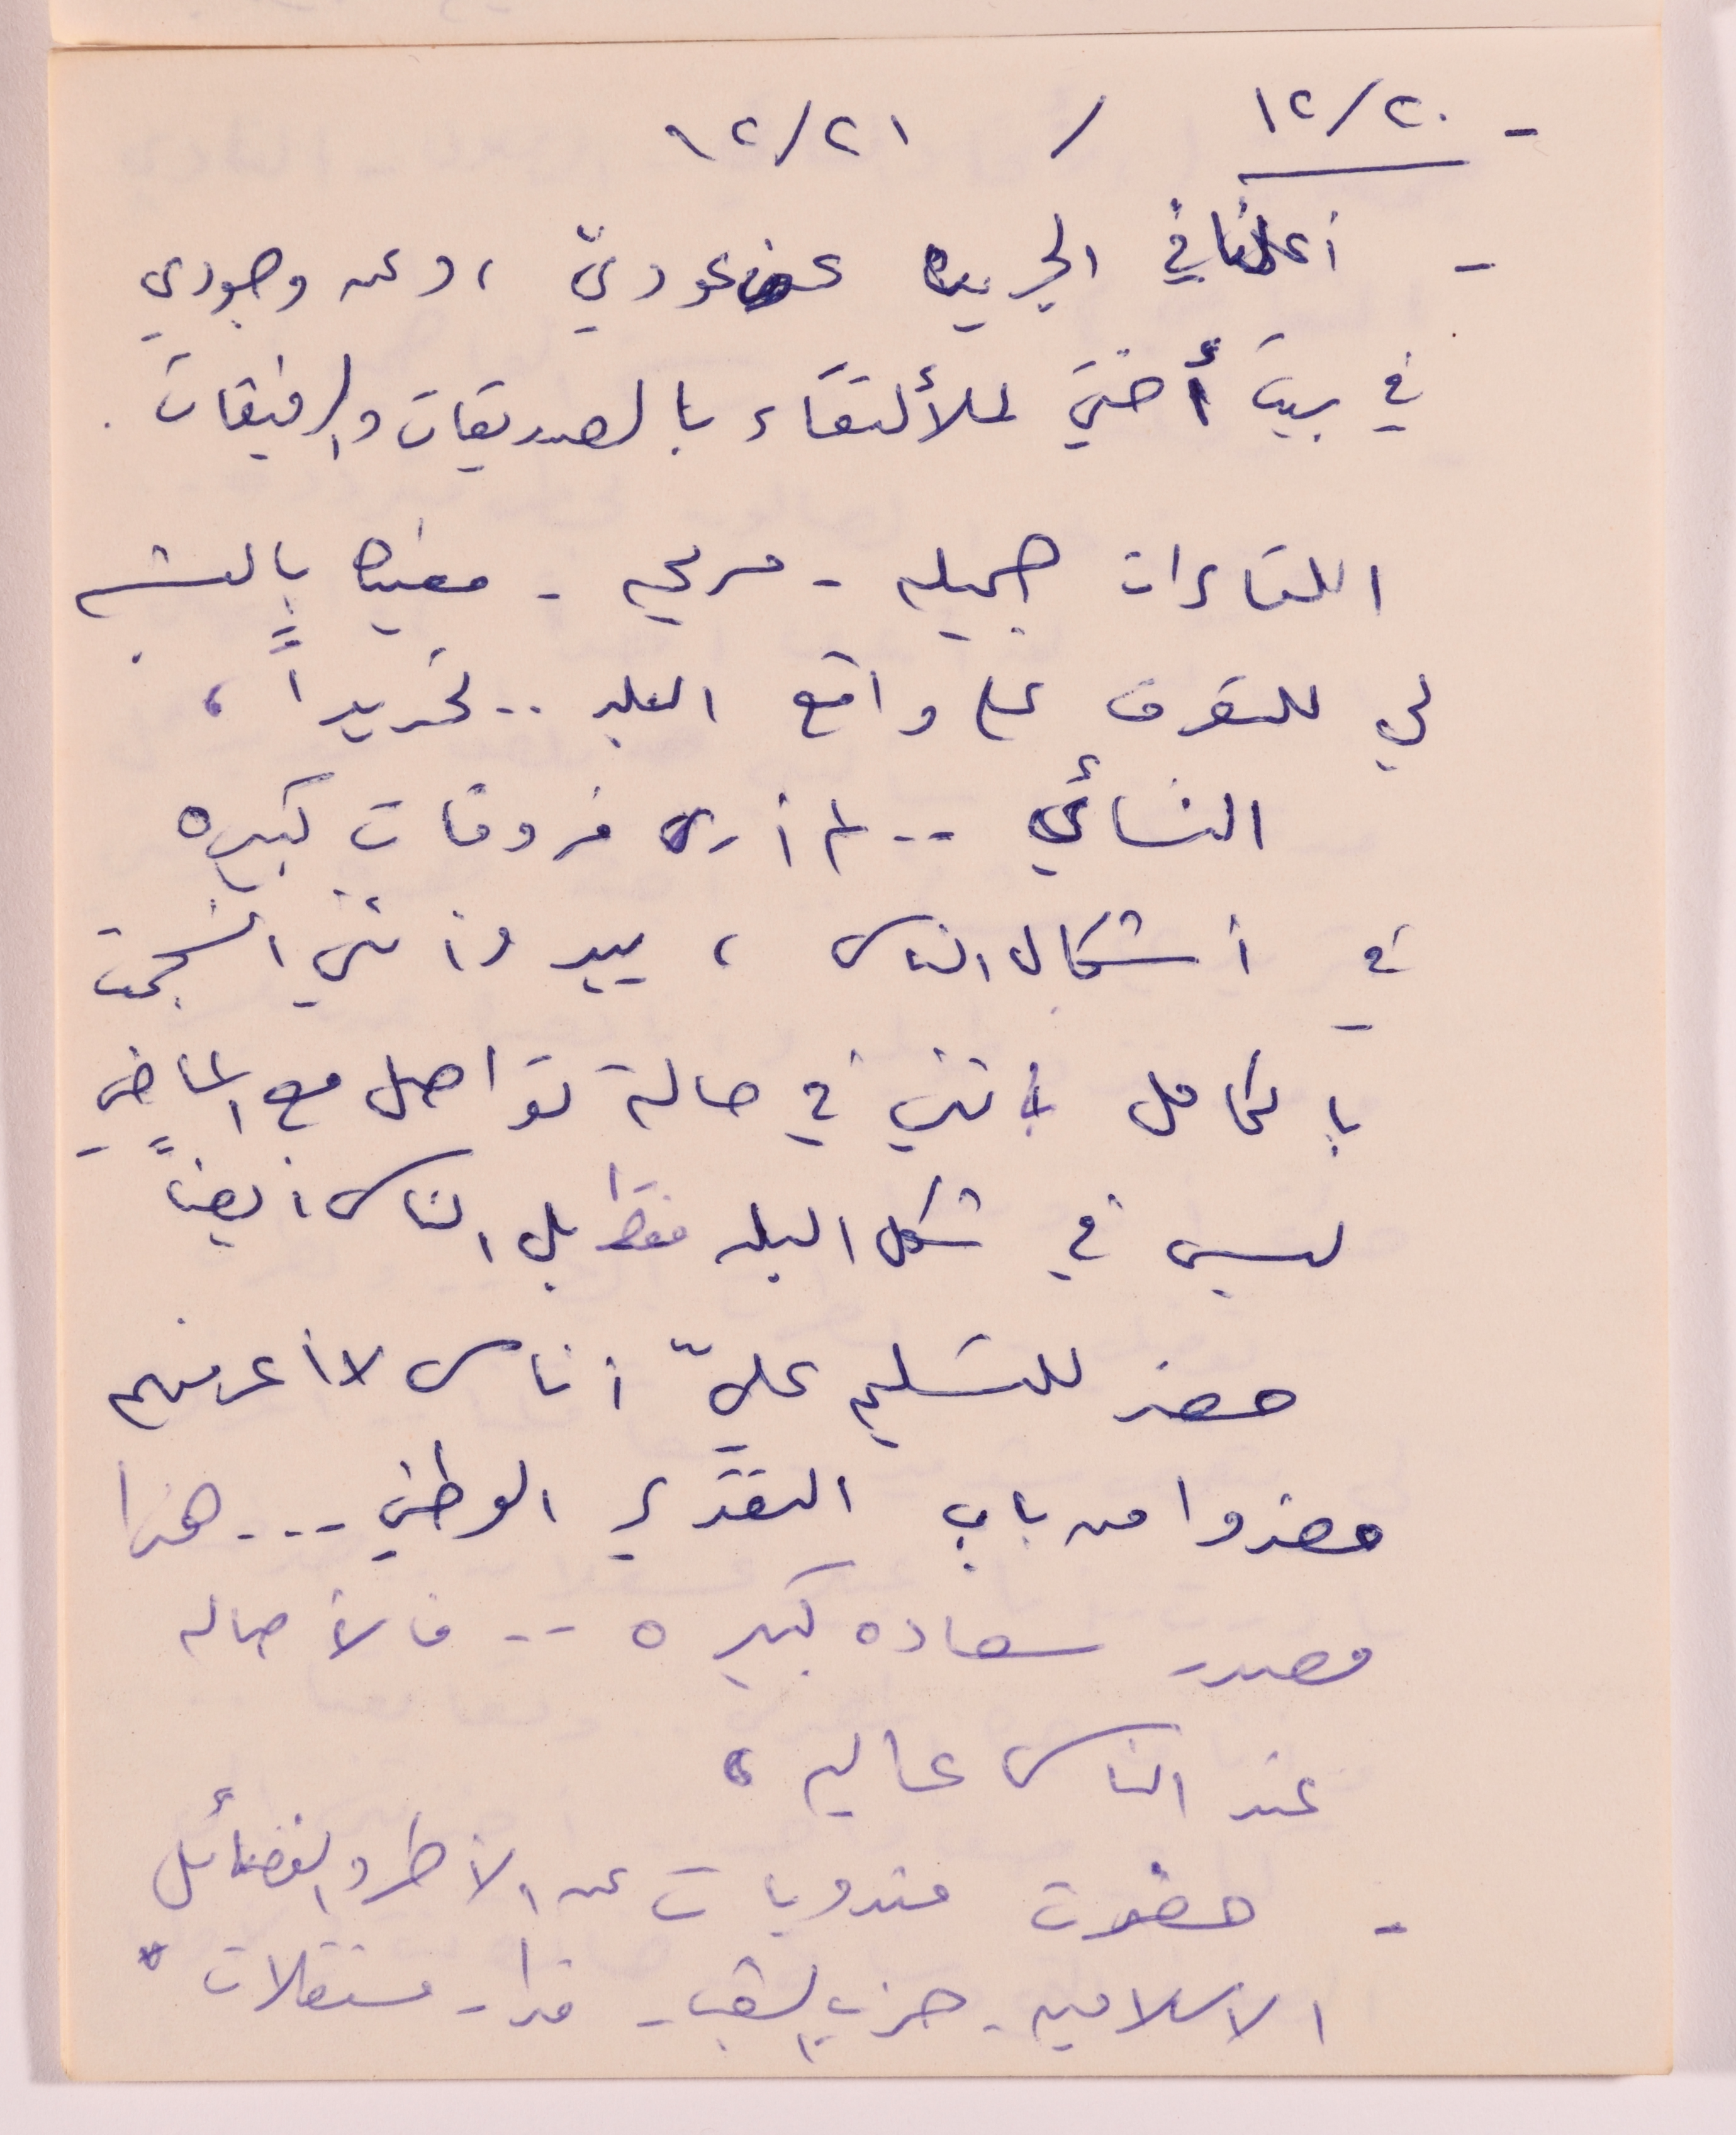 - ١٢/٢٠ / ١٢/٢١
- أعلنا في الجريده عن عودتي ، وعن وجودي
في بيت أختي للألتقاء بالصديقات والرفيقات .
اللقاءات جميله - مريحه - مفيده بالنسبه
لي للتعرف على واقع البلد .. تحديداً ،
النسائي .. لم أرى فروقات كبيره
في أشكال الناس ، يبدو أنني انسجمت
بالكامل بأنني في حالة تواصل مع الماضي
ليس في شكل البلد فقط بل الناس أيضاً
حضر للتسليم عليّ أناس لا أعرفهم
حضروا من باب التقدير الوطني ... هذا
مصدر سعاده كبيره .. فالأصاله
عند الناس عاليه ،
- حضرت مندوبات عن الأطر والفصائل
الاسلاميه - حزب الشعب - فدا - مستقلات "